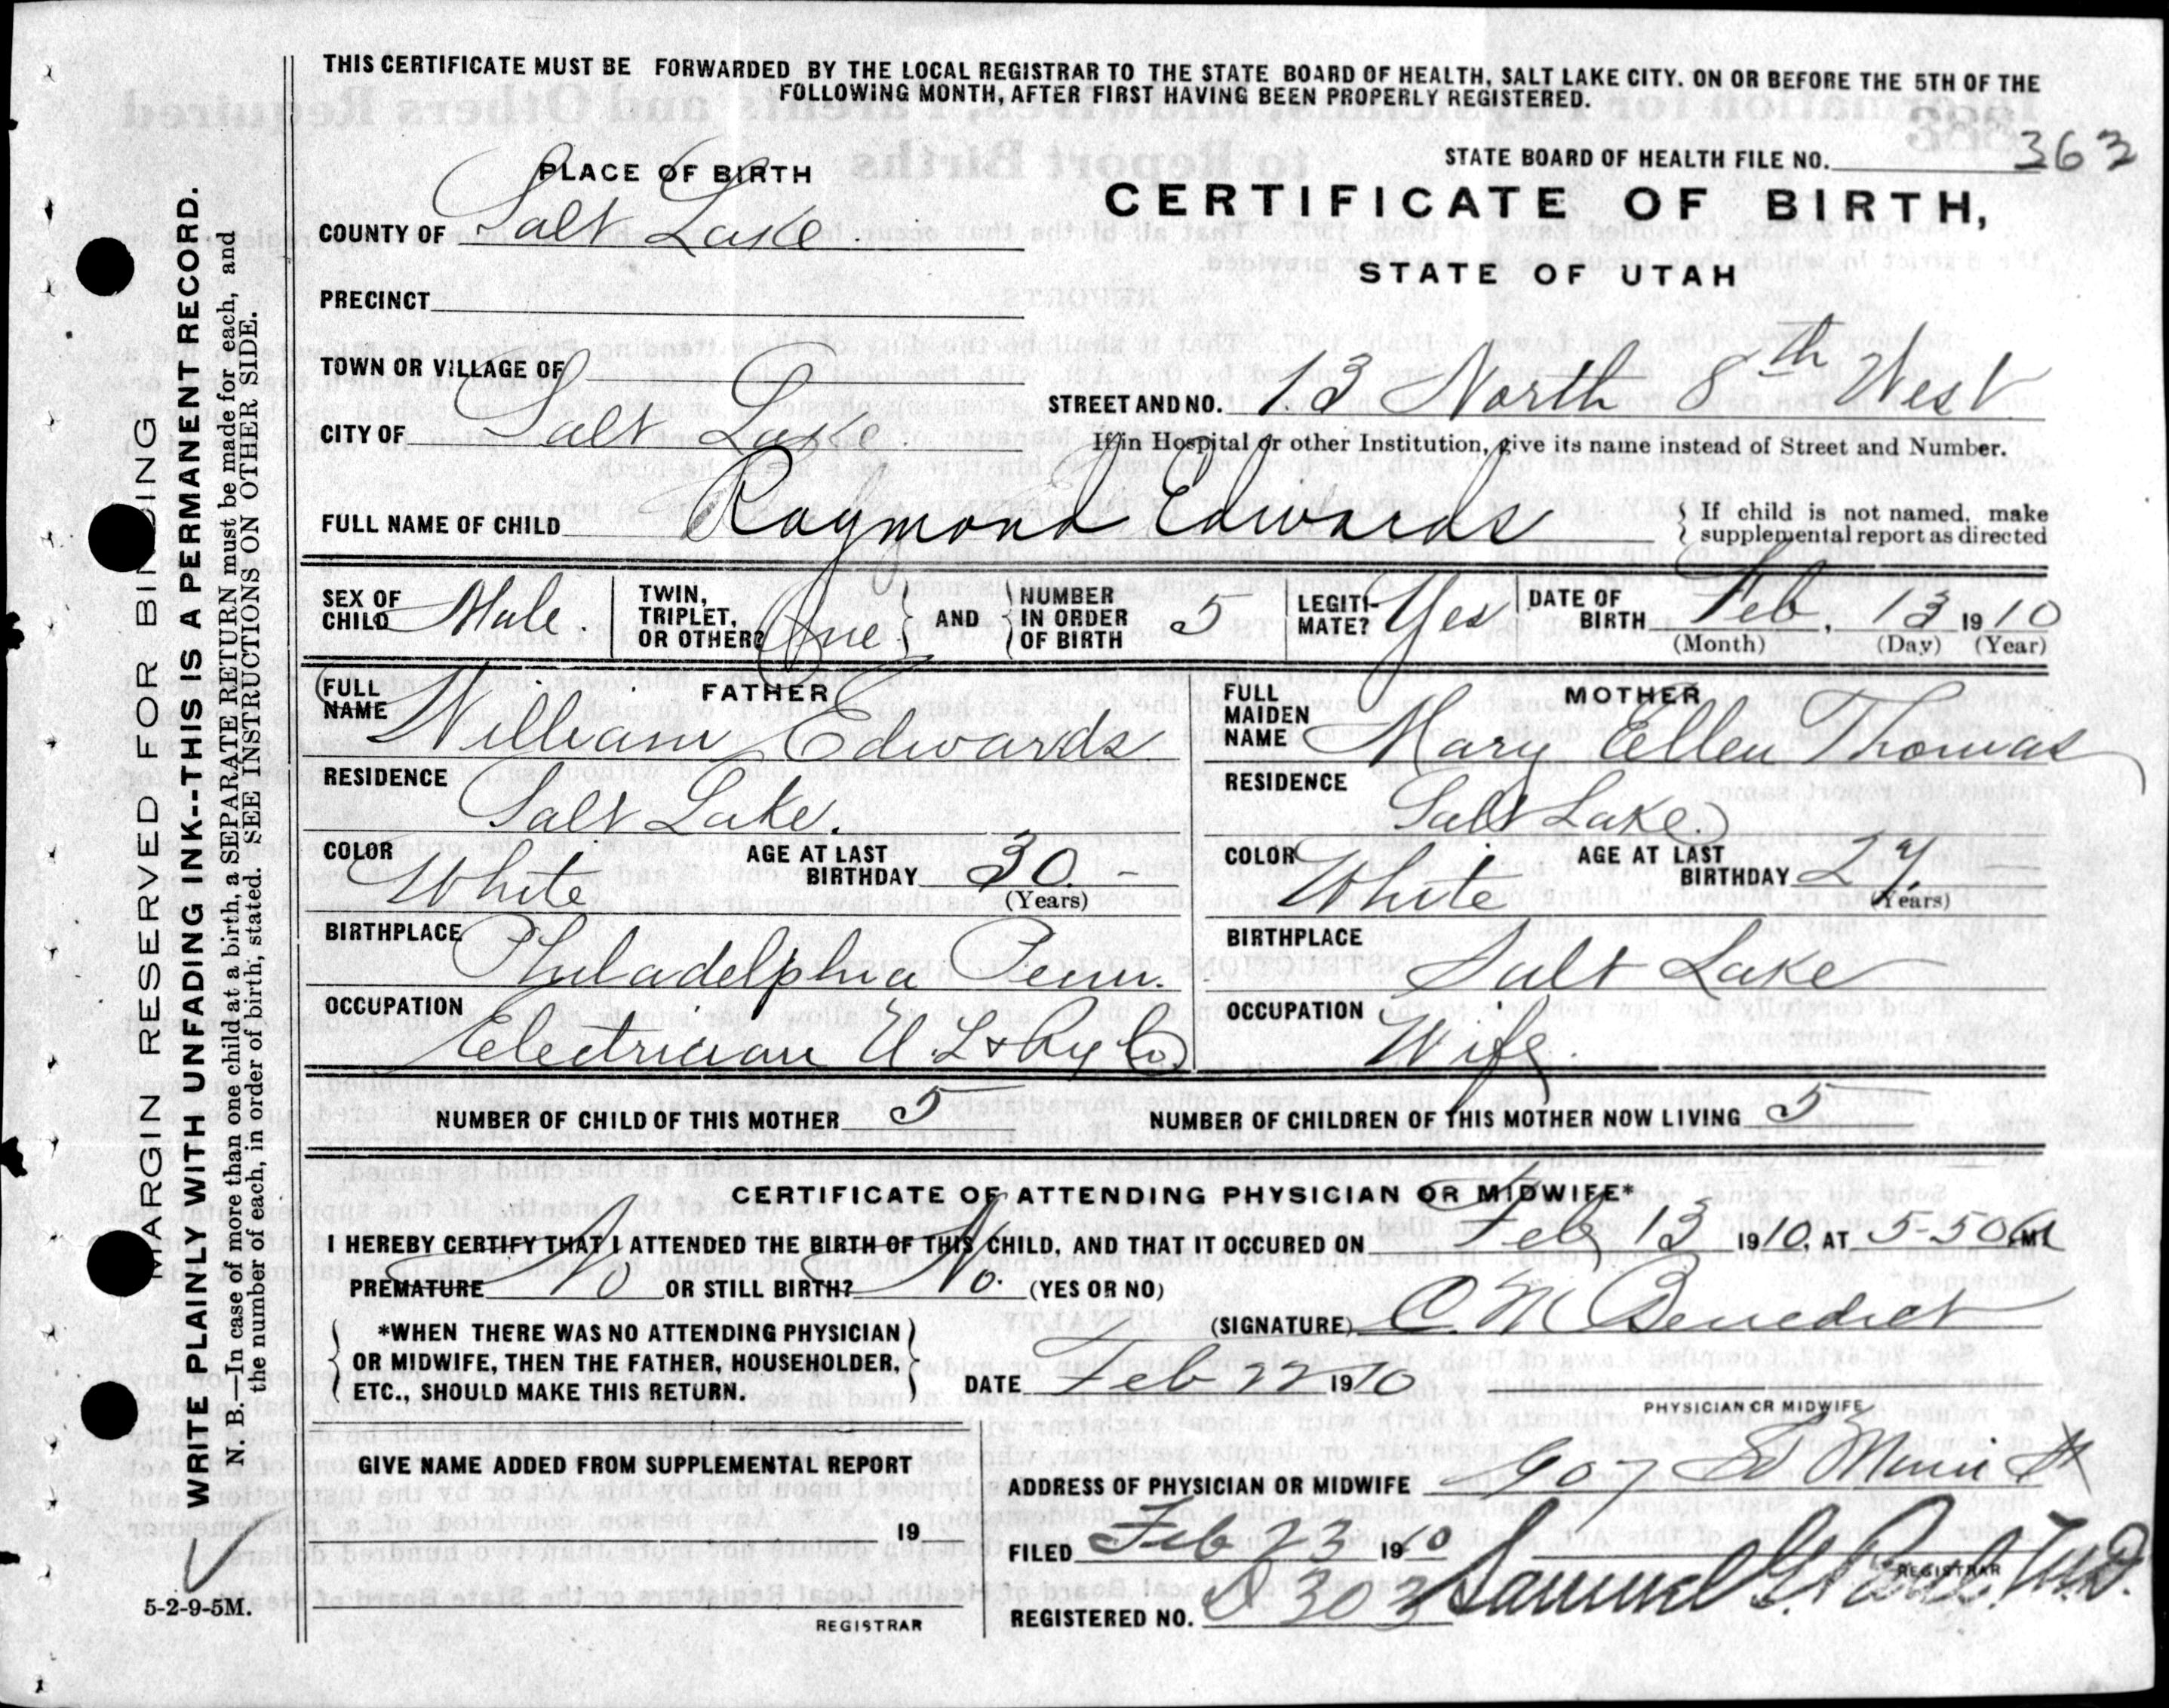 THIS CERTIFICATE MUST BE FORWARDED BY THE LOCAL REGISTRAR TO THE STATE BOARD OF HEALTH, SALT LAKE CITY, ON OR BEFORE THE 5TH OF THE
FOLLOWING MONTH, AFTER FIRST HAVING BEEN PROPERLY REGISTERED.
STATE BOARD OF HEALTH FILE NO. 363
PLACE OF BIRTH
CERTIFICATE OF BIRTH,
STATE OF UTAH
COUNTY OF Salt Lake
PRECINCT
TOWN OR VILLAGE OF
STREET AND NO. 13 North 8th West
CITY OF Salt Lake
If in Hospital or other Institution, give its name instead of Street and Number.
FULL NAME OF CHILD Raymond Edwards
If child is not named, make
supplemental report as directed
SEX OF CHILD Male.
TWIN, TRIPLET, OR OTHER? One
AND
NUMBER IN ORDER OF BIRTH 5
LEGITIMATE? Yes
DATE OF BIRTH Feb. 13 1910
(Month) (Day) (Year)
FATHER
FULL NAME William Edwards
RESIDENCE
Salt Lake.
COLOR White
AGE AT LAST BIRTHDAY 30 -
(Years)
BIRTHPLACE
Philadelphia Penn.
OCCUPATION
Electrician U. L & Ry Co
MOTHER
FULL MAIDEN NAME Mary Ellen Thomas
RESIDENCE
Salt Lake.
COLOR White
AGE AT LAST BIRTHDAY 27.
(Years)
BIRTHPLACE
Salt Lake
OCCUPATION
Wife.
NUMBER OF CHILD OF THIS MOTHER 5
NUMBER OF CHILDREN OF THIS MOTHER NOW LIVING 5
CERTIFICATE OF ATTENDING PHYSICIAN OR MIDWIFE*
I HEREBY CERTIFY THAT I ATTENDED THE BIRTH OF THIS CHILD, AND THAT IT OCCURED ON Feb 13 1910, AT 5-50 M
PREMATURE No OR STILL BIRTH? No. (YES OR NO)
*WHEN THERE WAS NO ATTENDING PHYSICIAN
OR MIDWIFE, THEN THE FATHER, HOUSEHOLDER,
ETC., SHOULD MAKE THIS RETURN.
(SIGNATURE) C. M Benedict
DATE Feb 22 1910
PHYSICIAN OR MIDWIFE
GIVE NAME ADDED FROM SUPPLEMENTAL REPORT
19
REGISTRAR
ADDRESS OF PHYSICIAN OR MIDWIFE 907 So Main St
FILED Feb 23 1910
REGISTRAR
REGISTERED NO. 303 Samuel G. Paul. M.D.
MARGIN RESERVED FOR BINDING
WRITE PLAINLY WITH UNFADING INK--THIS IS A PERMANENT RECORD.
N. B.—In case of more than one child at a birth, a SEPARATE RETURN must be made for each, and
the number of each, in order of birth, stated. SEE INSTRUCTIONS ON OTHER SIDE.
5-2-9-5M.